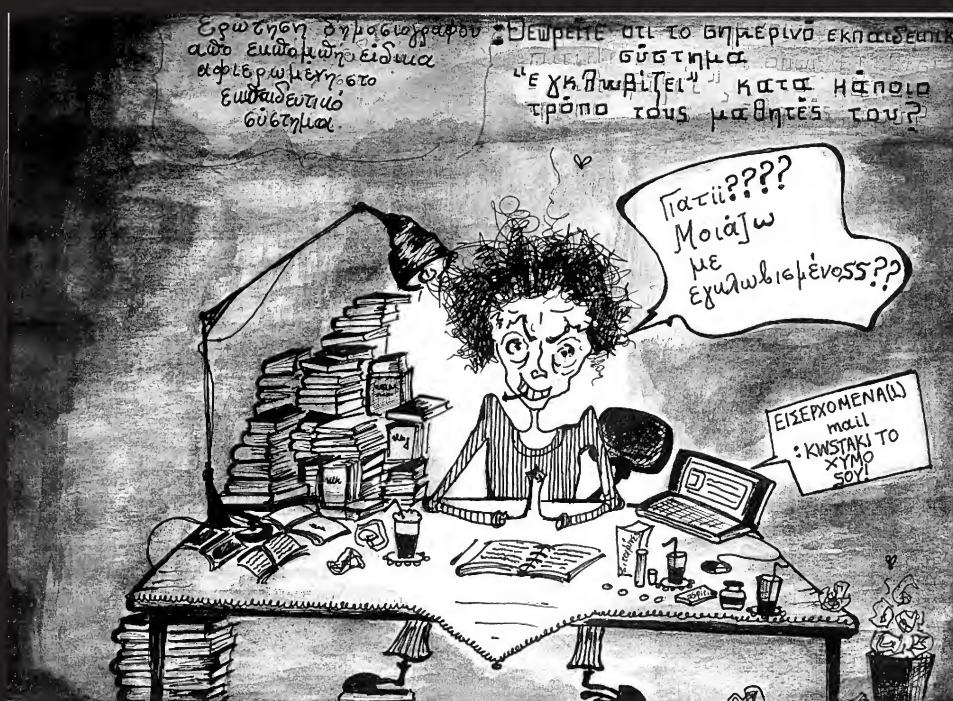 Ερώτηση δημοσιογράφου
από εκπομπή ειδικα
αφιερωμενη στο
εκπαιδευτικό
σύστημα.
: Θεωρειτε οτι το σημερινό εκπαιδευτικ
σύστημα
"εγκλωβίζει" κατα κάποιο
τρόπο τους μαθητές του?
Γιατιι????
Μοιάζω
με
εγκλωβισμένοss??
ΕΙΣΕΡΧΟΜΕΝΑ(1)
mail
: KWSTAKI TO
XYMO
SOY!
milk